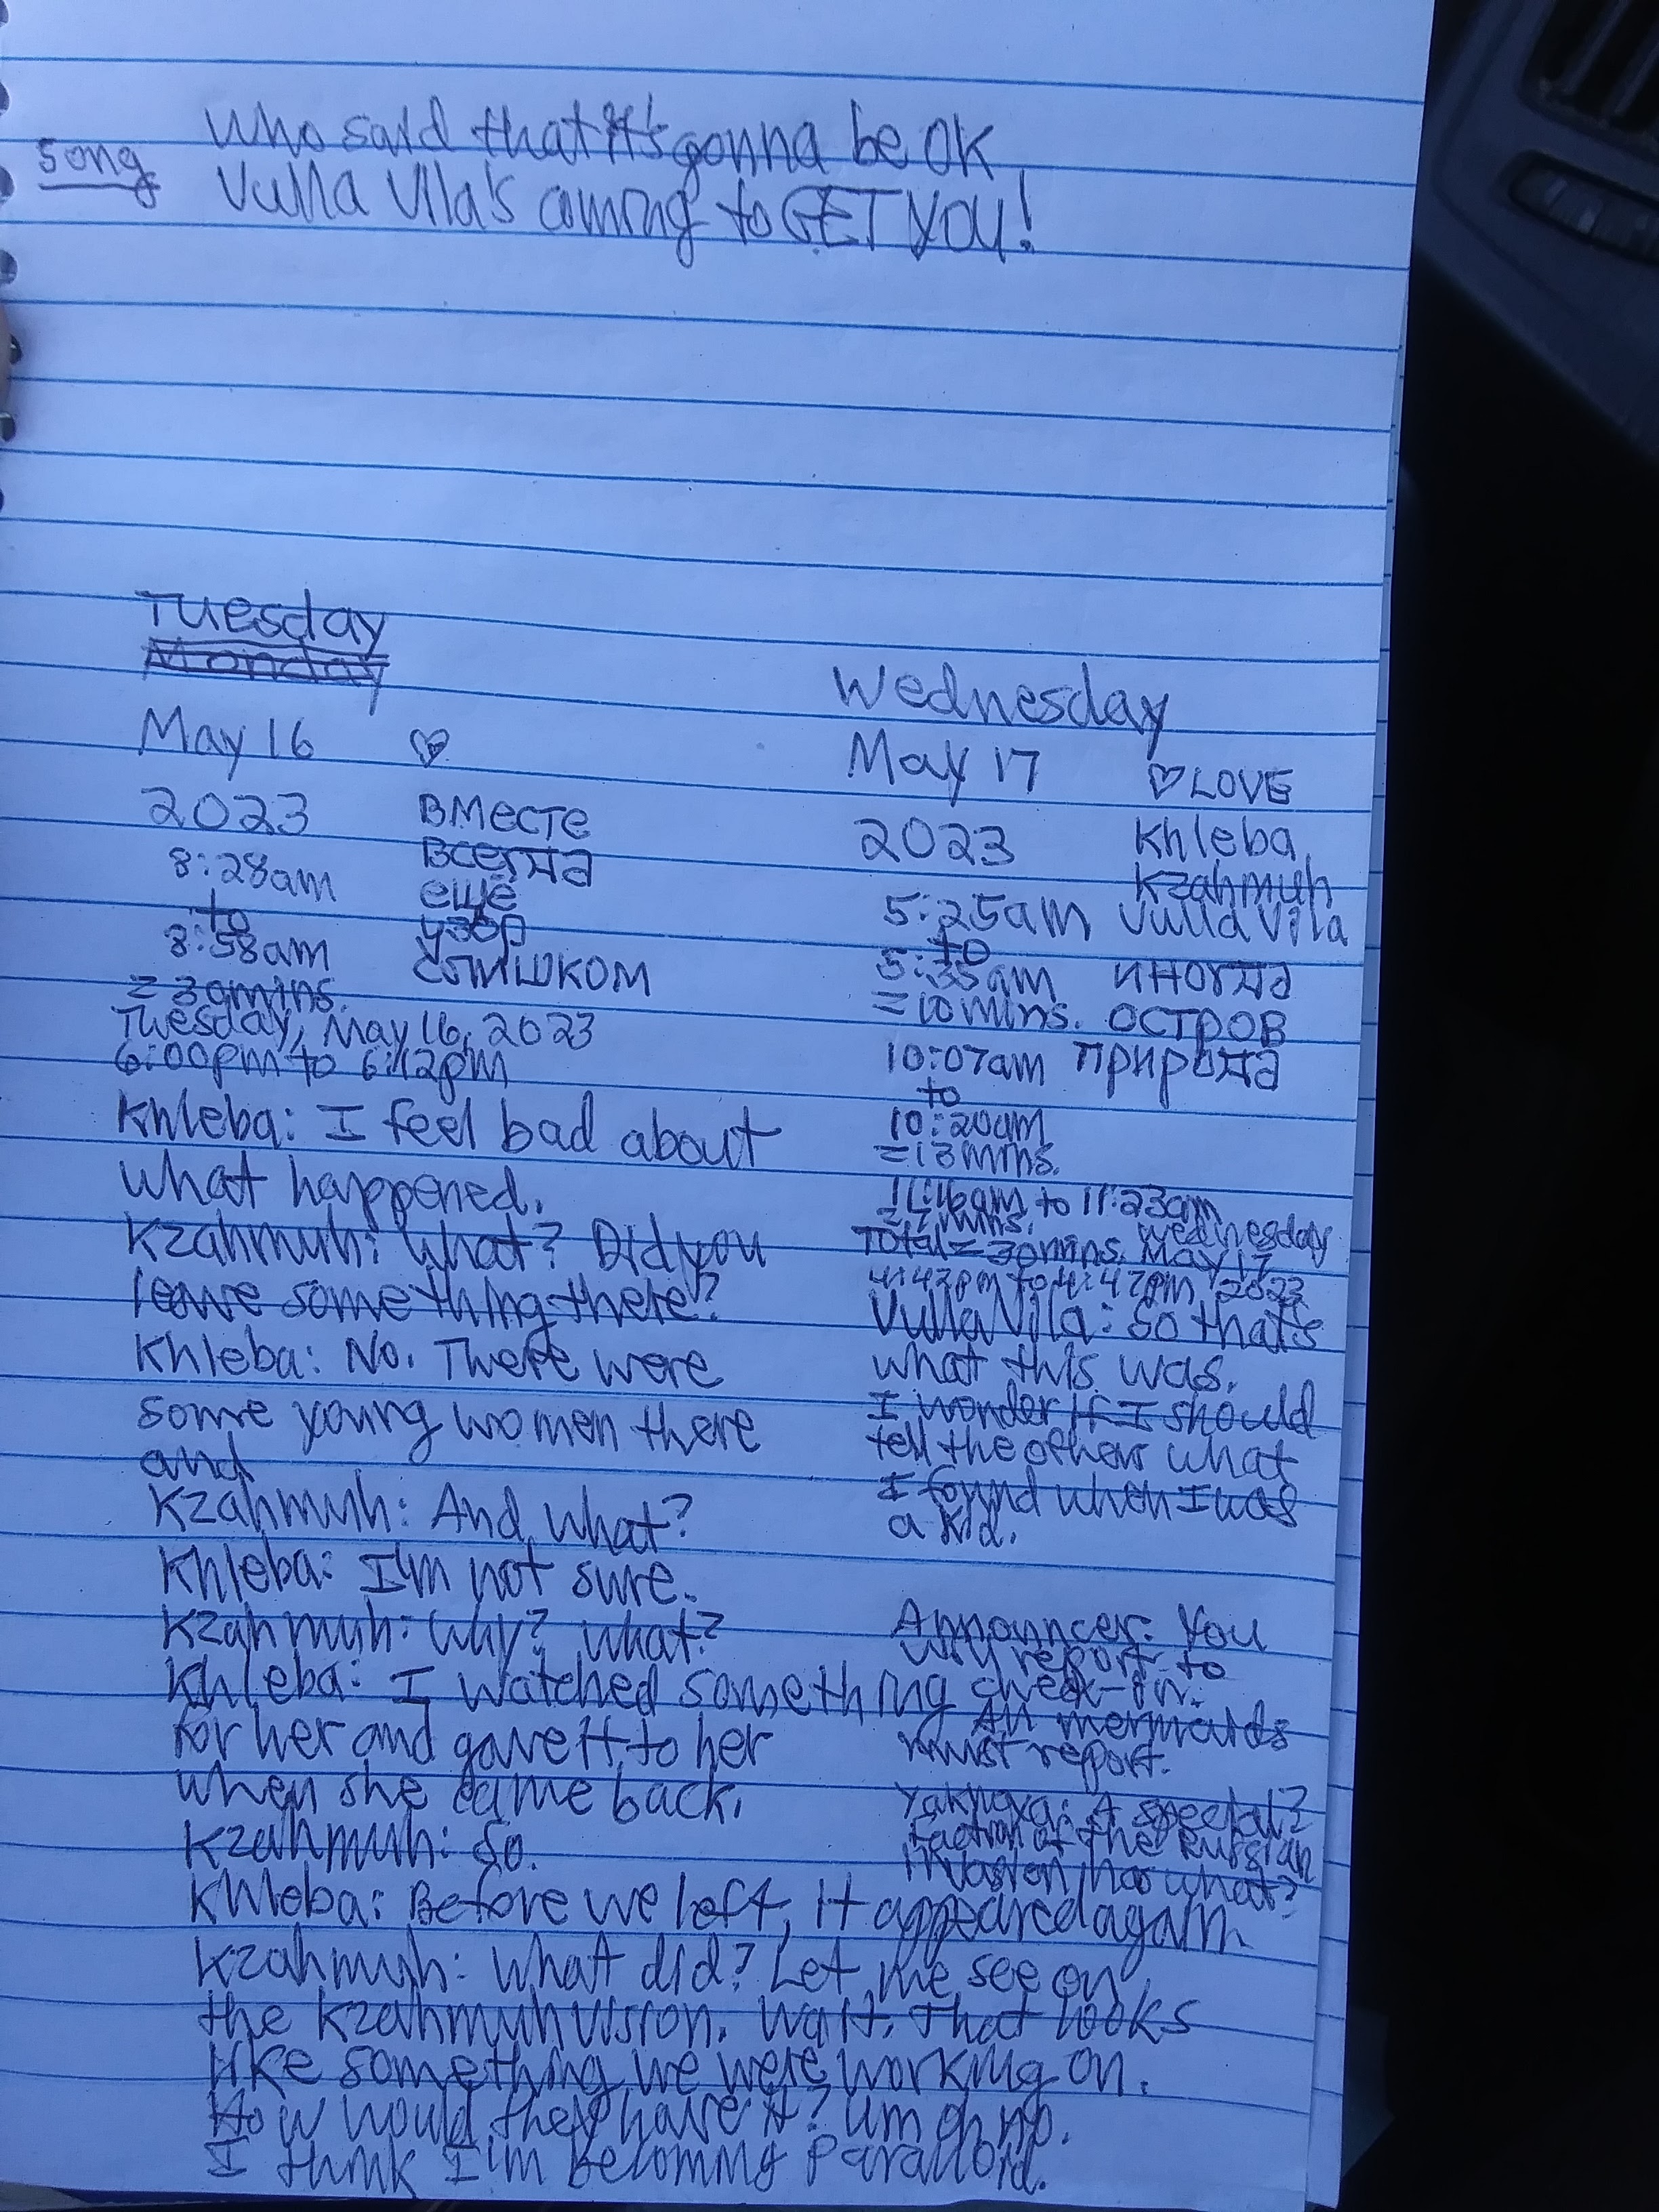 song
Who said that it's gonna be OK
Vulla Vila's coming to GET YOU!
Tuesday
Monday
May 16 ♡
2023
8:28am
to
8:58am
= 30mins.
вместе
всегда
ещё
узор
Tuesday, May 16, 2023
6:00pm to 6:12pm
Khleba: I feel bad about
what happened.
Kzahmuh: What? Did you
leave something there?
Khleba: No. There were
some young women there
and
Kzahmuh: And what?
Khleba: I'm not sure.
Kzahmuh: Why? What?
Khleba: I watched something
for her and gave it to her
when she came back.
Kzahmuh: So.
Khleba: Before we left, it appeared again
Kzahmuh: What did? Let me see on
the Kzahmuhvision. Wait. That looks
like something we were working on.
How would they have it? Um oh no.
I think I'm becoming paranoid.
Wednesday
May 17 ♡LOVE
2023
Khleba
Kzahmuh
Vulla Vila
5:25am
to
5:35am
=10mins.
иногда
остров
природа
10:07am
to
10:20am
=13mins.
11:16am to 11:23am
=7mins.
Total=30mins. Wednesday
May 17
4:42pm to 4:47pm 2023
Vulla Vila: So that's
what this was.
I wonder if I should
tell the others what
I found when I was
a kid.
Announcer: You
will report to
check-in.
All mermaids
must report.
A special?
Faction of the Russian
invasion has what?